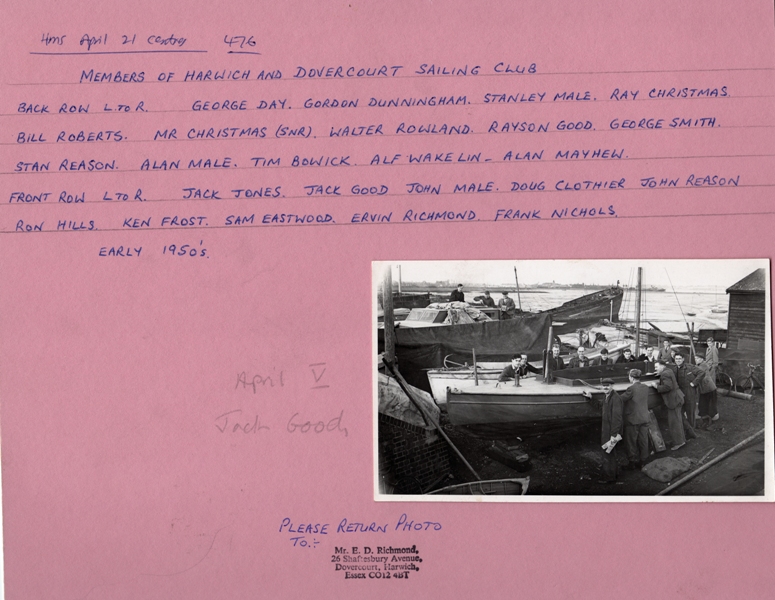 Hms April 21 Centres 476
MEMBERS OF HARWICH AND DOVERCOURT SAILING CLUB
BACK ROW L. TO R. GEORGE DAY. GORDON DUNNINGHAM. STANLEY MALE. RAY CHRISTMAS.
BILL ROBERTS. MR CHRISTMAS (SNR). WALTER ROWLAND. RAYSON GOOD. GEORGE SMITH.
STAN REASON. ALAN MALE. TIM BOWICK. ALF WAKELIN - ALAN MAYHEW.
FRONT ROW L TO R. JACK JONES. JACK GOOD JOHN MALE. DOUG CLOTHIER JOHN REASON
RON HILLS. KEN FROST. SAM EASTWOOD. ERVIN RICHMOND. FRANK NICHOLS.
EARLY 1950's.
April V
Jack Good,
PLEASE RETURN PHOTO
TO:-
Mr. E. D. Richmond,
26 Shaftesbury Avenue,
Dovercourt, Harwich,
Essex CO12 4BT